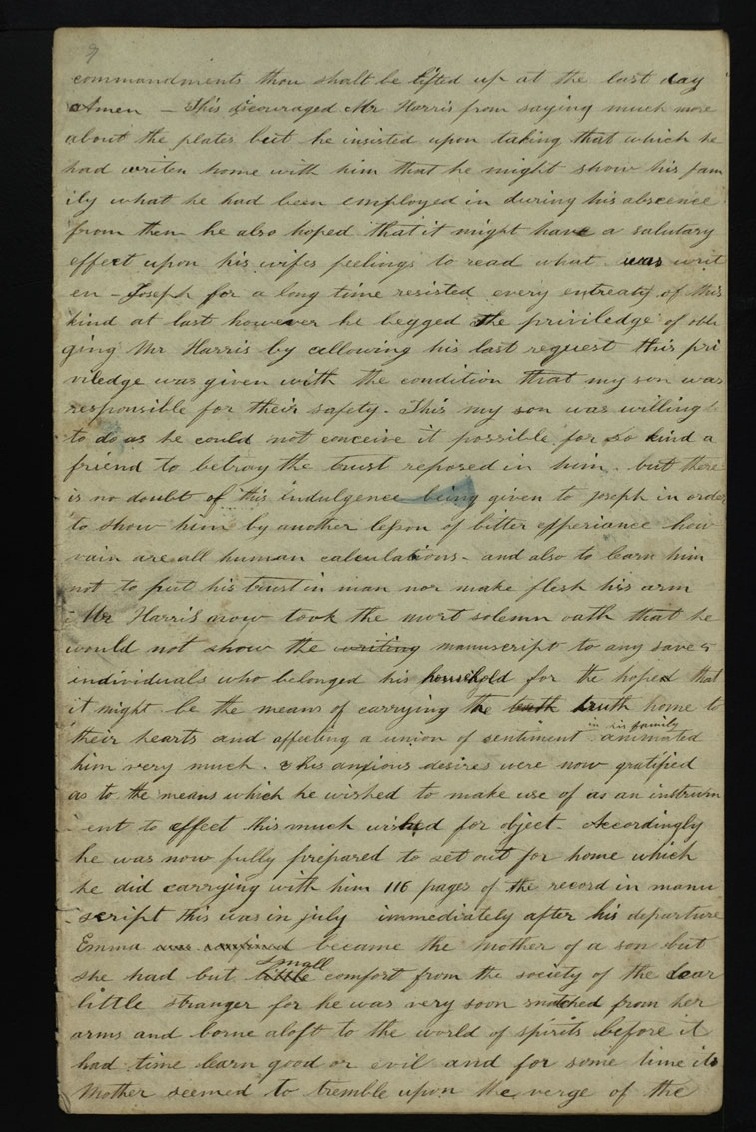 commandments thou shalt be lifted up at the last day
Amen — This dicouraged Mr Harris from saying much more
about the plates but he insisted upon taking that which he
had writen home with him that he might show his fam
ily what he had been employed in during his abscence
from them he also hoped that it might have a salutary
effect upon his wifes feelings to read what was writ
en — Joseph for a long time resisted every entreaty of this
kind at last however he begged the priviledge of obli
ging Mr Harris by allowing his last request this pri
viledge was given with the condition that my son was
responsible for their safety. This my son was willing
to do as he could not conceive it possible for so kind a
friend to betray the trust reposed in him. but there
is no doubt of this indulgence being given to Joseph in order
to show him by another lesson of bitter experiance how
vain are all human calculations— and also to learn him
not to put his trust in man nor make flesh his arm
Mr Harris now took the most solemn oath that he
would not show the writing manuscript to any save 5
individuals who belonged his household for the hoped that
it might be the means of carrying the truth truth home to
in is family
their hearts and affecting a union of sentiment animated
him very much. his anxious desires were now gratified
as to the means which he wished to make use of as an instrum
ent to effect this much wished for object. Accordingly
he was now fully prepared to set out for home which
he did carrying with him 116 pages of the record in manu
script this was in july immediately after his departure
Emma was confined became the mother of a son but
small
she had but little comfort from the society of the dear
little stranger for he was very soon snatched from her
arms and borne aloft to the world of spirits before it
had time learn good or evil and for some time its
Mother seemed to tremble upon the verge of the